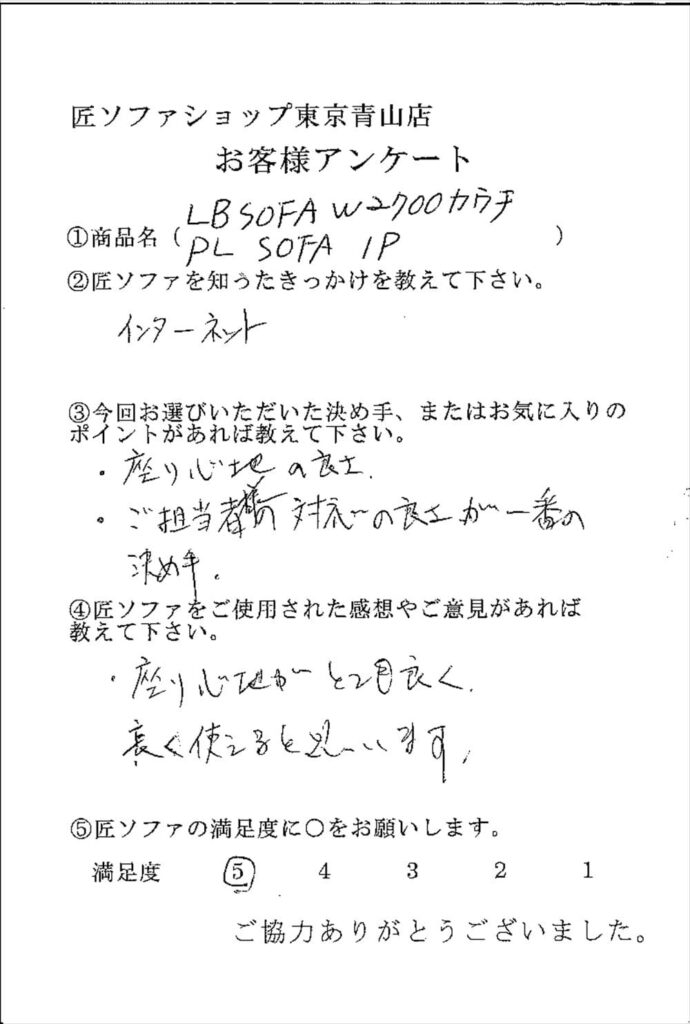 匠ソファショップ東京青山店
お客様アンケート
①商品名（LB SOFA W2700カウチ
PL SOFA 1P）
②匠ソファを知ったきっかけを教えて下さい。
インターネット
③今回お選びいただいた決め手、またはお気に入りの
ポイントがあれば教えて下さい。
・座り心地の良さ.
・ご担当者様の対応の良さが一番の
決め手。
④匠ソファをご使用された感想やご意見があれば
教えて下さい。
・座り心地がとても良く、
長く使えると思います。
⑤匠ソファの満足度に○をお願いします。
満足度 5 4 3 2 1
ご協力ありがとうございました。